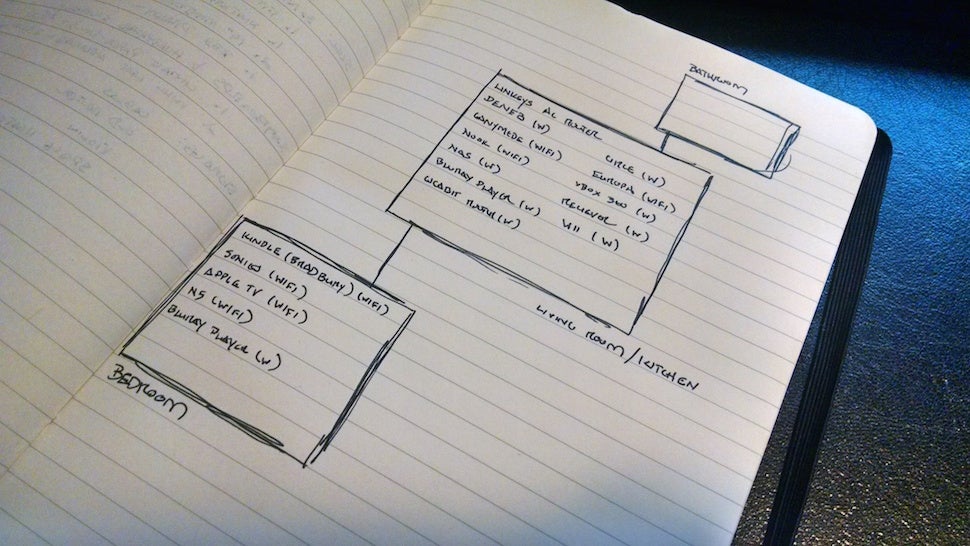 BATHROOM
LINKSYS AC ROUTER
DENEB (W)
GANYMEDE (WIFI)
NOOK (WIFI)
NAS (W)
BLURAY PLAYER (W)
GIGABIT ROUTER (W)
CIRCLE (W)
EUROPA (WIFI)
XBOX 360 (W)
RECEIVER (W)
WII (W)
LIVING ROOM/KITCHEN
KINDLE (BRADBURY) (WIFI)
SONIQ (WIFI)
APPLE TV (WIFI)
(WIFI)
BLURAY PLAYER (W)
BEDROOM